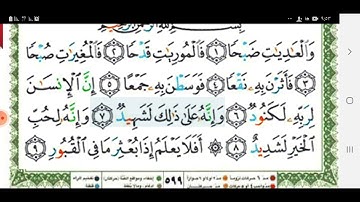 وَالْعَادِيَاتِ ضَبْحًا ١ فَالْمُورِيَاتِ قَدْحًا ٢ فَالْمُغِيرَاتِ صُبْحًا
٣ فَأَثَرْنَ بِهِ نَقْعًا ٤ فَوَسَطْنَ بِهِ جَمْعًا ٥ إِنَّ الْإِنسَانَ
لِرَبِّهِ لَكَنُودٌ ٦ وَإِنَّهُ عَلَىٰ ذَٰلِكَ لَشَهِيدٌ ٧ وَإِنَّهُ لِحُبِّ
الْخَيْرِ لَشَدِيدٌ ٨ أَفَلَا يَعْلَمُ إِذَا بُعْثِرَ مَا فِي الْقُبُورِ ٩
٥٩٩